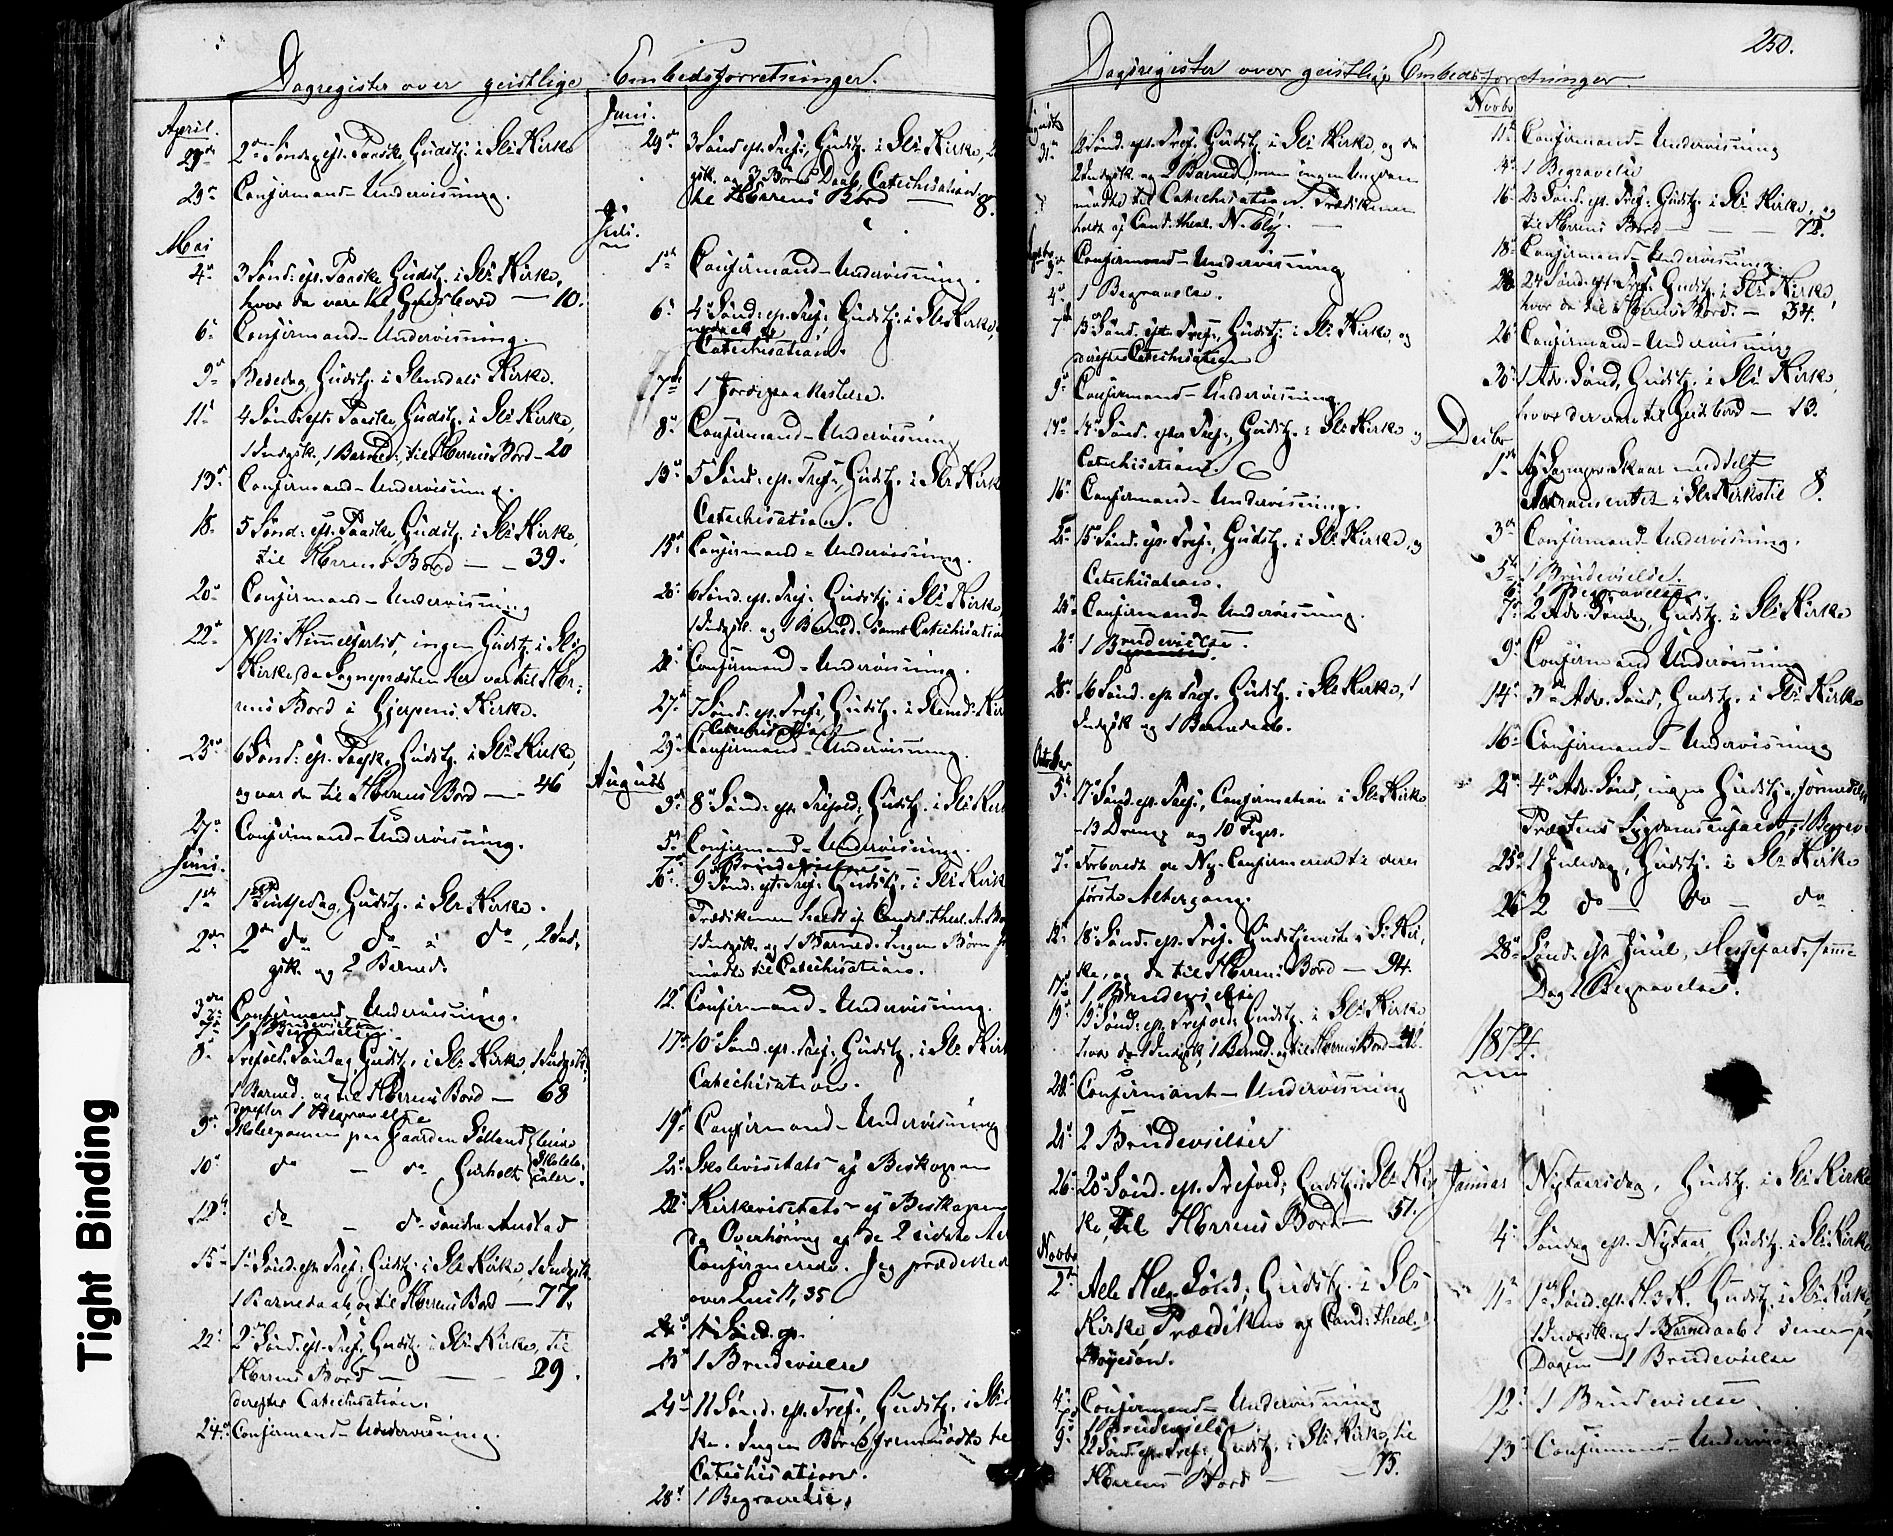 Dagregister over geistlige Embedsforretninger.
April.
29de 2den Søndag eft. Paaske, Gudstj. i Sl: Kirke
Confirmand-Undervisning.
Mai
4de 3 Sønd: ep. Paaske Gudstj. i Sl: Kirke,
hvor da vare til Gudsbord — 10.
6te Confirmand-Undervisning.
9de Bededag Gudstj. i Slemdals Kirke.
11te 4 Sønd. eft. Paaske, Gudstj. i Sl: Kirke,
1 Indgsk., 1 Barned:, til Herrens Bord — 20
13de Confirmand-Undervisning.
18. 5 Sønd: ep. Paaske, Gudstj. i Sl: Kirke,
til Herrens Bord — 39.
20de Confirmand-Undervisning
22de Xsti Himmelfartsd, ingen Gudstj. i Sl:
Kirke, da Sognepræsten her var til Her-
rens Bord i Gjerpens Kirke.
25de 6 Sønd: ep. Paask. Gudstj. i Sl: Kirke,
og var der til Herrens Bord — 46
27de Confirmand-Undervisning.
Juni.
1ste 1ste Pintsedag, Gudstj. i Sl: Kirke.
2den 2den do do i do, 2 Ind-
gsk. og 2 Barned.
3die Confirmand-Undervisning.
7de 1 Brudevielse
8de Trefold. Søndag, Gudstj. i Sl: Kirke, 1 Indgsk.
1 Barned. og til Herrens Bord — 68
derefter 1 Begravelse
9de Skoleexamen paa Gaarden
10de do — do
12te do — do søndre
15de 1ste Sønd. ep. Tref. Gudstj. i Sl: Kirke, 1 Indgsk.
1 Barnedaab, og til Herrens Bord — 77.
22de 2den Sønd. ep. Tref., Gudstj. i Sl: Kirke, til
Herrens Bord — 29.
derefter Catechisation.
24de Confirmand-Undervisning.
Juni.
29de 3 Sønd. ep. Tref:, Gudstj. i Sl: Kirke,
gsk. og 3 Børns Daab, Catechisation,
til Herrens Bord — 8.
Juli.
1ste Confirmand-Undervisning.
6te 4de Sønd: ep. Tref:, Gudstj: i Sl: Kirke,
Catechisation.
7de 1 Jordspaakastelse.
8de Confirmand-Undervisning
13de 5 Sønd: ep. Tref:, Gudstj. i Sl: Kirke
Catechisation.
15de Confirmand-Undervisning.
20de 6 Sønd. ep. Tref: Gudstj: i Sl: Kirke
1 Indgsk. og 1 Barned. samt Catechisation
22de Confirmand-Undervisning.
27de 7 Sønd. ep. Tref:, Gudstj: i Slemd: Kir
Catechisation
29de Confirmand-Undervisning
August
3de 8de Sønd: ep. Trefold:, Gudstj. i Sl: Kirk
5te Confirmand-Undervisning.
1 Brudevielse
10de 9 Sønd: ep. Tref: Gudstj. i Sl: Kirk
Prædikenen holdt af Candid. theol. A. B
1 Indgsk. og 1 Barned. Ingen Børn fr
mødte til Catechisation.
12te Confirmand-Undervisning.
17de 10de Sønd. ep. Tref: Gudstj. i Sl: Kirk
Catechisation.
19de Confirmand-Undervisning
21de Skolevisitats af Biskopen
22de Kirkevisitats af Biskopen
og Overhøring af de 2 sidste Aar
Confirmerede. Jeg prædikede
over Luc. 11, 35
1 Sønd. ep.
23de 1 Brudevielse
24de 11 Sønd. ep. Tref:, Gudstj. i Sl: Kir-
ke. Ingen Børn fremmødte til
Catechisation.
28de 1 Begravelse.
Dagsregister over geistlige Embedsforretninger. 250.
August
31te 12 Sønd. ep. Tref. Gudstj. i Sl: Kirke, og da
2 Indgsk. og 2 Barned., men ingen Ungdom
mødte til Catechisation. Prædikenen
holdt af Cand. theol. N.
Confirmand-Undervisning
4de 1 Begravelse.
7de 13de Sønd. ep. Tref:, Gudstj. i Sl: Kirke, og
derefter Catechisation
9de Confirmand-Undervisning.
14de 14de Sønd. efter Tref:, Gudstj. i Sl: Kirke og
Catechisation.
16de Confirmand-Undervisning.
21de 15de Sønd. ep. Tref:, Gudstj. i Sl: Kirke, og
Catechisation.
Confirmand-Undervisning.
26de 1 Brudevielse.
28de 16 Sønd. ep. Tref. Gudstj. i Sl: Kirke, 1
Indgsk. og 1 Barnedaab.
October
5te 17de Sønd. ep. Tref:, Confirmation i Sl: Kirke
— 13 Drenge og 10 Piger.
7de Forberedt de Ny-Confirmerede til deres
første Altergang.
12te 18de Sønd. ep. Tref. Gudstjeneste i Sl: Kir-
ke, og da til Herrens Bord — 94.
17de 1 Brudevielse
19de 19de Sønd: ep. Trefold: Gudstj. i Sl: Kirke
hvor da 1 Indgsk, 1 Barned. og til Herrens Bord —
Confirmant-Undervisning
2 Brudevielser
26de 20de Sønd. ep. Trefold:, Gudstj. i Sl: Kir-
ke, til Herrens Bord — 51.
Novbr
2den Alle Helg. Sønd, Gudstj. i Sl:
Kirke, Prædiken af Cand: theol.
Boyesen.
4de Confirmand-Undervisning
1 Brudevielse
9de 22 Sønd. ep. Tref: Gudstj. i Sl: Kirke, til
Herrens Bord — 75.
Novbr
11te Confirmand-Undervisning
1 Begravelse
16de 23 Sønd. ep. Tref. Gudstj. i Sl: Kirke, og
til Herrens Bord — 72.
18de Confirmand-Undervisning.
24 Sønd. eft. Tref: Gudstj. i Sl: Kirke,
hvor da til Herrens Bord. — 34.
Confirmand-Undervisning
30te 1 Adv. Sønd, Gudstj. i Sl: Kirke,
hvor der vare til Gudsbord — 13.
Decbr
1ste Af Sogneper meddelt
Sakramentet i Sl: Kirke til 8.
3die Confirmand-Undervisning.
5te 1 Brudevielse.
6te 1 Begravelse.
7de 2 Adv. Søndag, Gudstj. i Sl: Kirke
9de Confirmand Undervisning
14de 3die Adv. Sønd, Gudstj. i Sl: Kirke
16de Confirmand-Undervisning
21de 4de Adv. Sønd, ingen Gudstj. formedelst
Præstens Sygdomstilfælde, 1 Begrav
25de 1 Juledag, Gudstj. i Sl: Kirke
26de 2 do — do — do
28de Sønd. ep. Juul, Messefald, samme
Dag 1 Begravelse.
1874.
Januar Nytaarsdag, Gudstj. i Sl: Kirke
4de Søndag ep. Nytaar, Gudstj. i Sl: Kirke
11te 1ste Sønd. ep. H. 3 K. Gudstj. i Sl: Kirke,
1 Indgsk. og 1 Barnedaab, senere paa
Dagen 1 Brudevielse
12te 1 Brudevielse.
13de Confirmand-Undervisn
Tight Binding